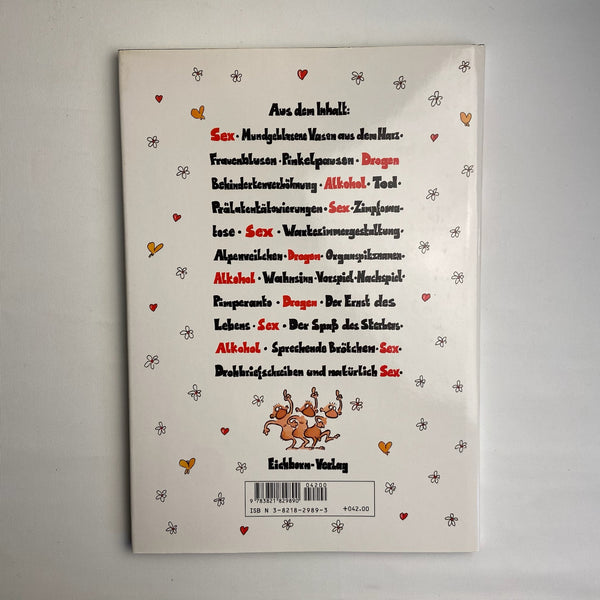 Aus dem Inhalt:
Sex · Mundgeblasene Vasen aus dem Harz ·
Frauenblusen · Pinkelpausen · Drogen
Behindertenverhöhnung · Alkohol · Tod ·
Prälatentätowierungen · Sex · Zimpfoma-
tose · Sex · Wartezimmergestaltung ·
Alpenveilchen · Drogen · Organspitznamen ·
Alkohol · Wahnsinn · Vorspiel · Nachspiel ·
Pimperanto · Drogen · Der Ernst des
Lebens · Sex · Der Spaß des Sterbens ·
Alkohol · Sprechende Brötchen · Sex ·
Drohbriefschreiben und natürlich Sex ·
Eichborn-Verlag
04200
9 783821 829890
ISBN 3-8218-2989-3 +042.00